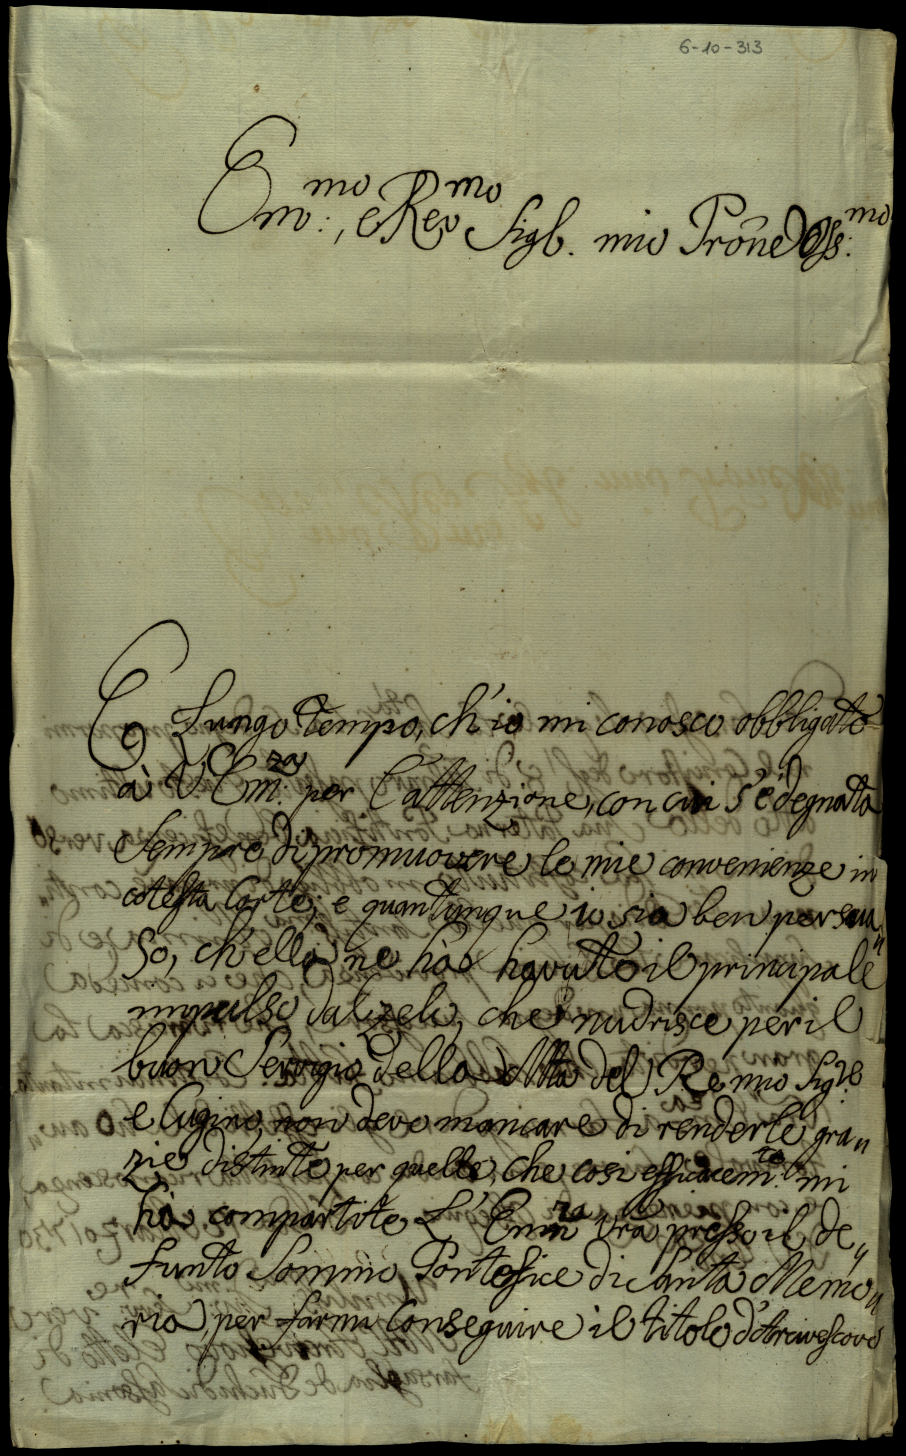 6-10-313
Em:mo, e Revmo Sigl. mio Prõne Oss:mo
E Lungo tempo, ch'io mi conosco obbligato
à V. Em:za per l'attenzione, con cui s'è degnata
sempre di promuovere le mie convenienze in
cotesta Corte; e quantunque io sia ben persua„
so, ch'ella ne hà havuto il principale
impulso dal zelo, che nudrisce per il
buon Servigio della Mtà del Re mio Sigre
e Cugino, non devo mancare di renderle gra„
zie distinte per quelle, che così efficacem:te mi
hà compartite L'Eminza Vrã presso il de„
funto Sommo Pontefice di Santa Memo„
ria, per farmi conseguire il titolo d'Arcivescovo